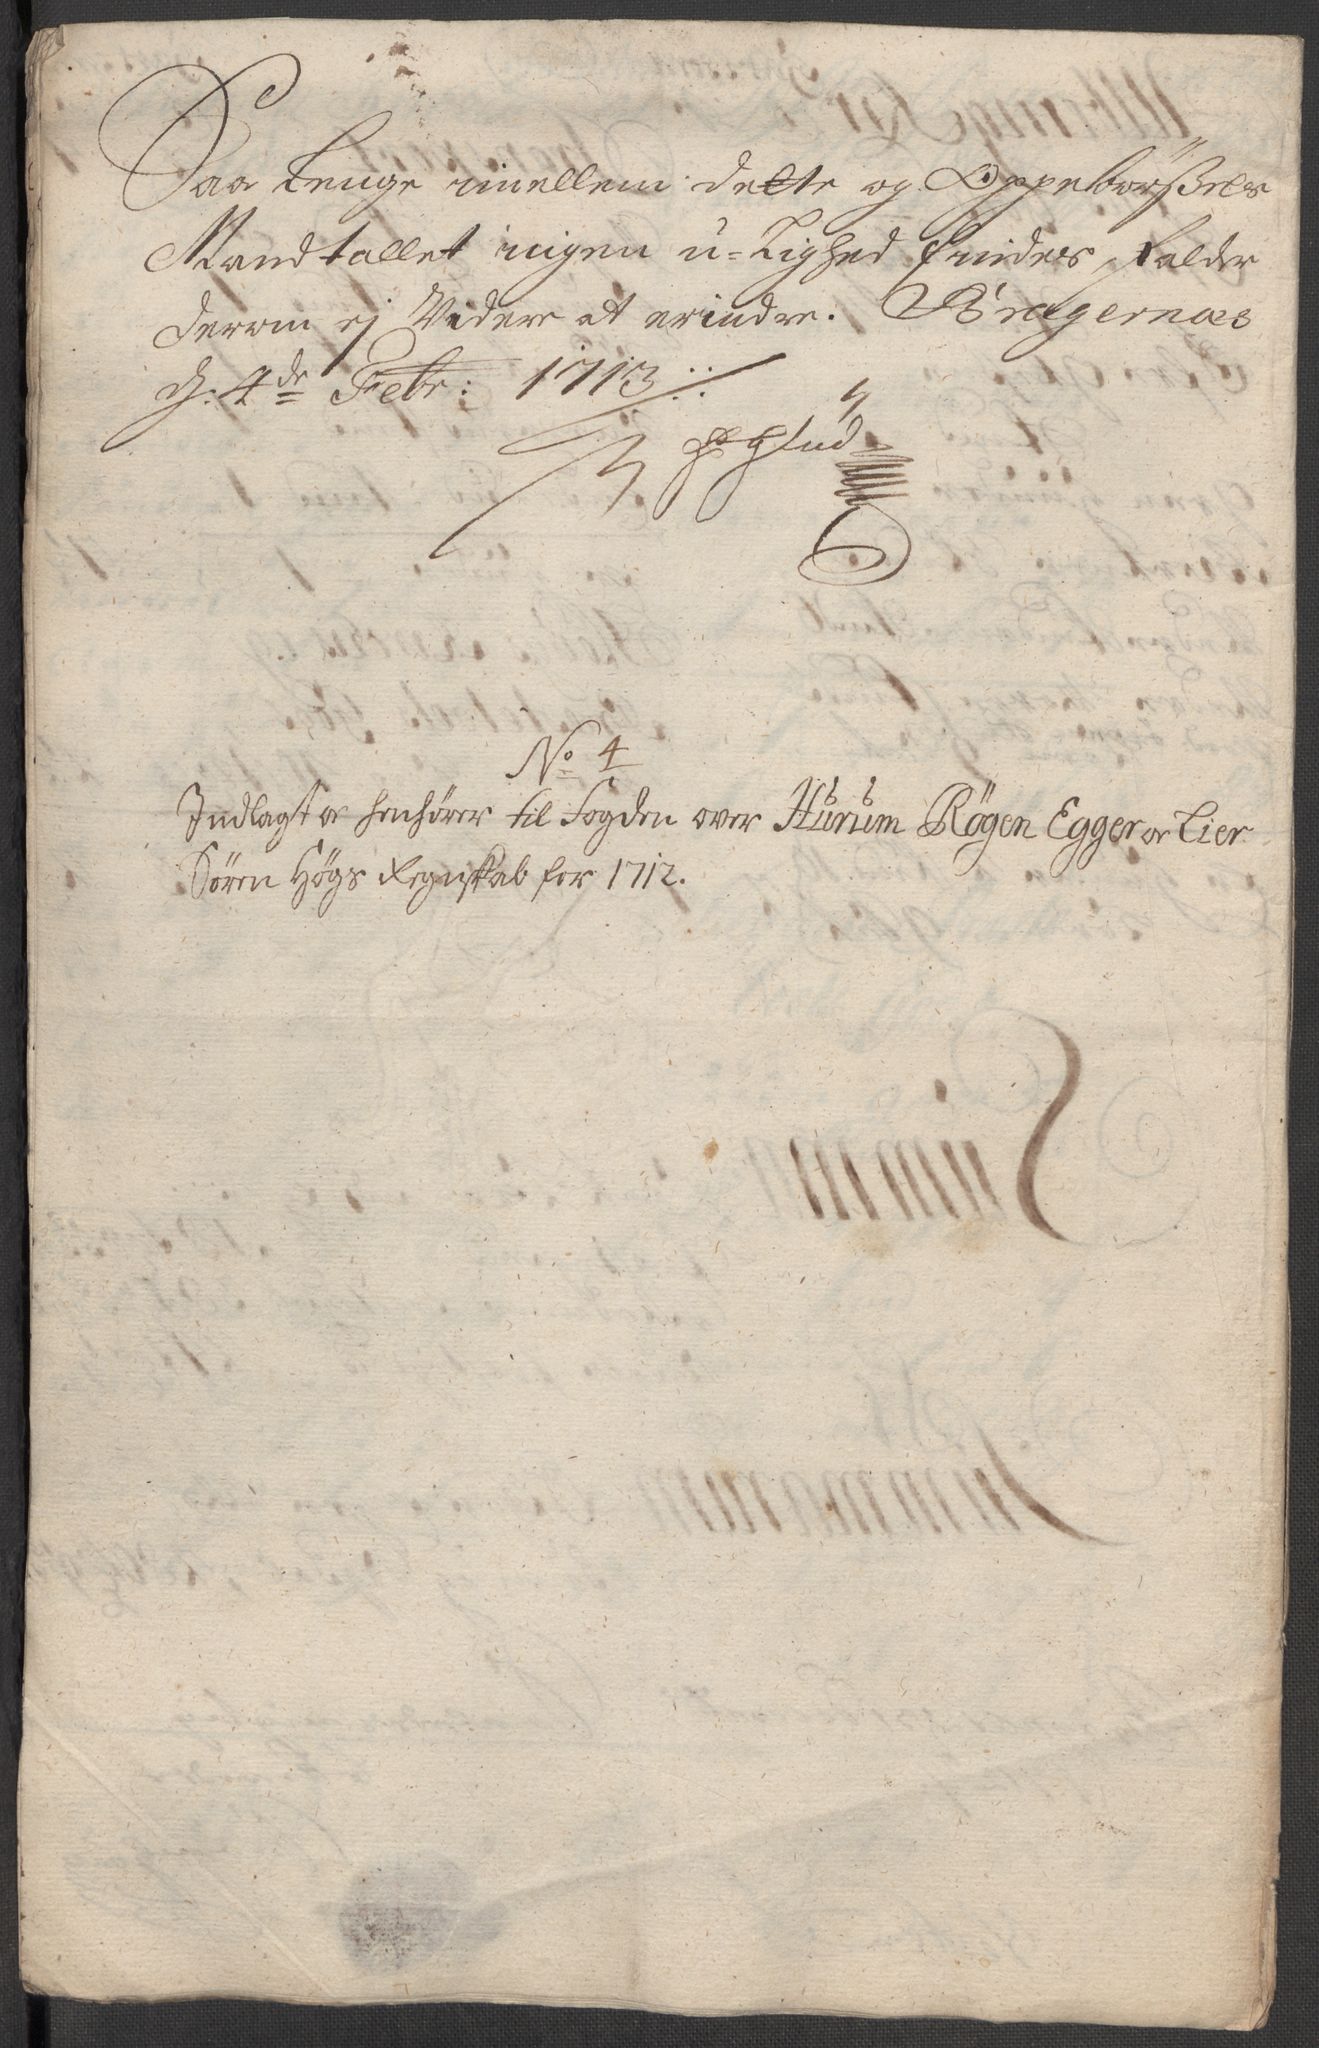 Saa lenge imellem dette og Oppebørßels
Mandtallet ingen u-Lighed findes, falder
derom ej Videre at erindre. Bragernæs
d: 4de Febr: 1713
No 4
Indlagt oc henhører til Fogden over Hurum Røgen Egger oc Lier
Søren Høgs Regnskab for 1712.